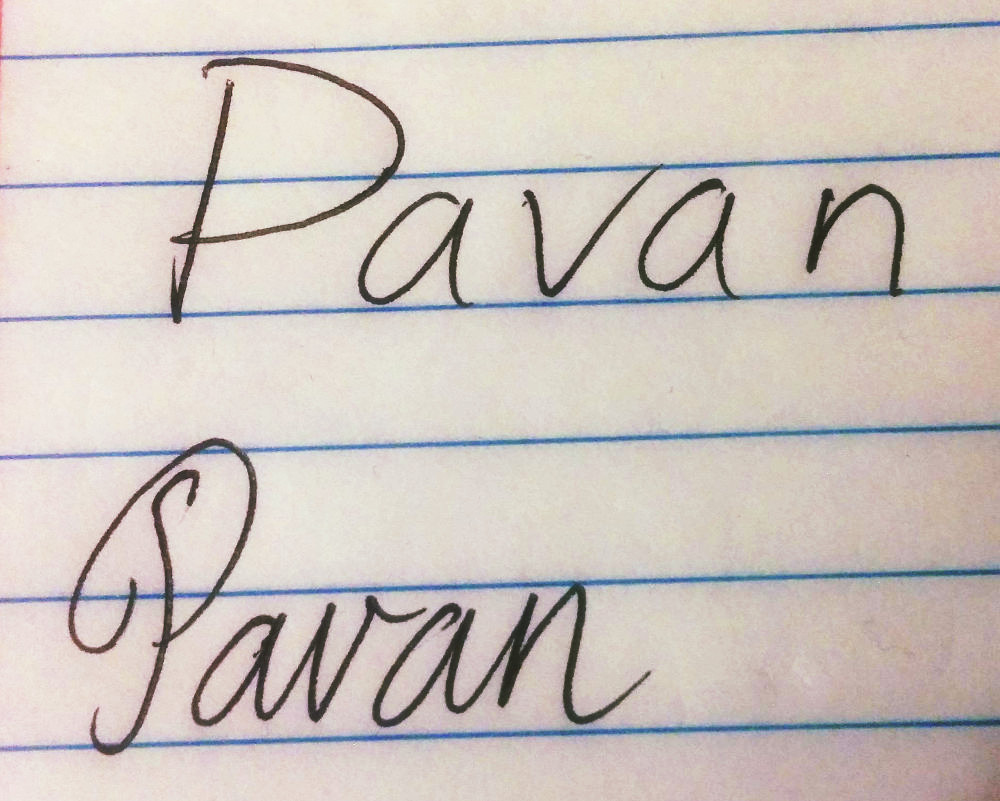 Pavan
Pavan